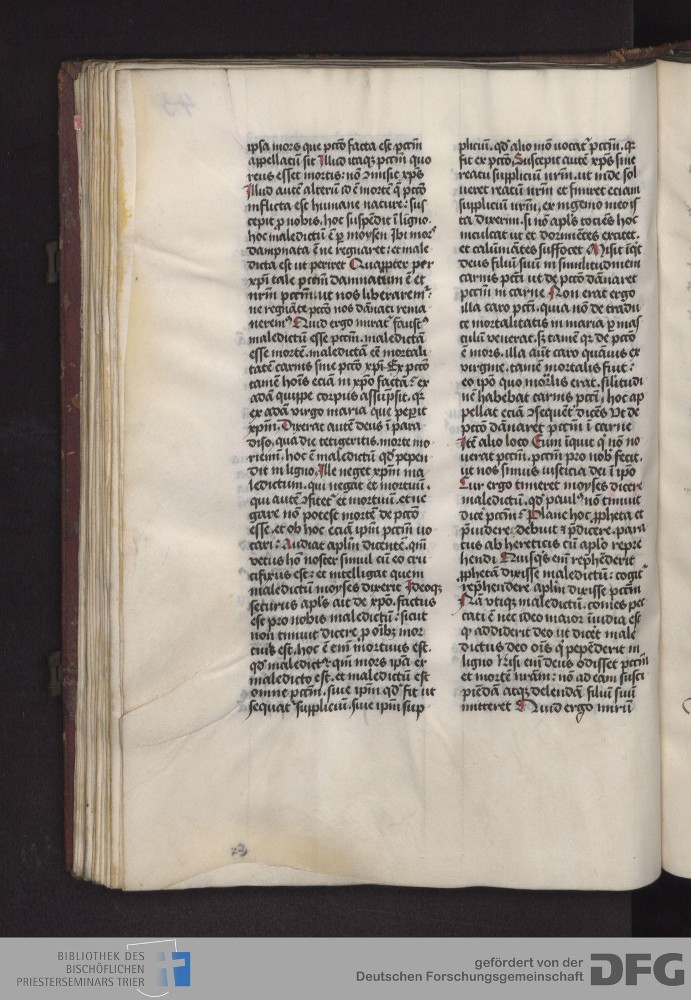 ipsa mors que pctō facta est pctm̄
appellatū sit Illud itaqꝫ pctm̄ quo
reus esset mortis: nō ꝯmisit xp̄s
Illud autē alterū id ē mortē q̄ pctō
inflicta est humane nature: sus
cepit ꝓ nobis. hoc suspēdit ī ligno.
hoc maledictū ē ꝑ moysen Ibi morˢ
dampnata ē ne regnaret: et male
dicta est ut periret Quapp̄ter per
xp̄i tale pctm̄ damnatum ē et
nr̄m pctm̄. ut nos liberaremꝰ:
ne regnāte pctō nos dānati rema
neremꝰ Quid ergo miratˢ faustꝰ
maledictū esse pctm̄. maledictā
esse mortē. maledictā eē mortali
tatē carnis sine pctō xp̄i. Ex pctō
tamē hoīs eciā in xp̄o factā: ex
adā quippe corpus assūpsit. qꝛ
ex adā virgo maria que peperit
xp̄m. Dixerat autē deus ī para
diso. qua die tetigeritis. morte mo
riemī. hoc ē maledictū qđ pepen
dit in ligno. Ille neget xp̄m ma
ledictum. qui negat eē mortuū.
qui autē ꝯfitetˢ eē mortuū. et ne
gare nō potest mortē de pctō
esse. et ob hoc eciā ip̄m pctm̄ uo
cari: Audiat aplm̄ dicentē. qm̄
vetus hō noster simul cū eo cru
cifixus est: et intelligat quem
maledictū moyses dixerit Ideoqꝫ
securus apl̄s ait de xp̄o. factus
est pro nobis maledictū: sicut
non timuit dicere ꝓ oībꝫ mor
tuus est. hoc ē enī mortuus est.
qđ maledictꝰ: qm̄ mors ipā ex
maledicto est. et maledictū est
omne pctm̄. siue ip̄m qđ fit ut
sequatˢ supplicium. siue ip̄m sup
plicium. qđ alio mō uocatˢ pctm̄. qꝛ
fit ex pctō Suscepit autē xp̄s sine
reatu suppliciū nr̄m. ut inde sol
ueret reatū nr̄m et finiret eciam
suppliciū nr̄m. ex ingenio meo is
ta dixerim. si nō apl̄s tociēs hoc
inculcat ut et dormiētes excitet.
et calūniātes suffocet Misit īqͥt
deus filiū suū in similitudinem
carnis pcti ut de pctō dānaret
pctm̄ in carne Non erat ergo
illa caro pcti. quia nō de tradu
ce mortalitatis in maria ꝑ mas
culū venerat. sꝫ tamē qꝛ de pctō
ē mors. illa aūt caro quāuis ex
virgine. tamē mortalis fuit:
eo ip̄o quo mor̄lis erat. silitudi
nē habebat carnis pcti. hoc ap
pellat eciā ꝯsequēt dicēs Ut de
pctō dānaret pctm̄ ī carne
Itē alio loco Eum īquit qͥ nō no
uerat pctm̄. pctm̄ pro nob̄ fecit.
ut nos simus iusticia dei ī ip̄o
Cur ergo timeret moyses dicere
maledictū. qđ paulꝰ nō timuit
dicē pctm̄: Plane hoc ꝓpheta et
p̄uidere debuit ꝛ p̄dicere. para
tus ab hereticis cū aplo repre
hendi. Quisqͥs enī rep̄hēderit
ꝓphetā dixisse maledictū: cogitˢ
rep̄hendere aplm̄ dixisse pctm̄
Nā utiqꝫ maledictū. comes pec
cati ē nec ideo maior īuidia est
qͥ addiderit deo ut dicēt male
dictus deo oīs qͥ pepēderit in
ligno Nisi enī deus odisset pctm̄
et mortē nr̄am: nō ad eam susci
piēdā atqꝫ delendā filiū suū
mitteret Quid ergo mirū
BIBLIOTHEK DES
BISCHÖFLICHEN
PRIESTERSEMINARS TRIER
gefördert von der
Deutschen Forschungsgemeinschaft
DFG